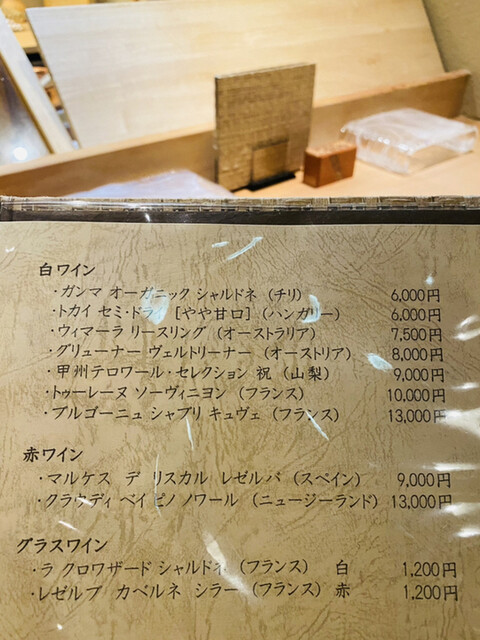 白ワイン
・ガンマ オーガニック シャルドネ (チリ) 6,000円
・トカイ セミ・ドライ [やや甘口] (ハンガリー) 6,000円
・ウィマーラ リースリング (オーストラリア) 7,500円
・グリューナー ヴェルトリーナー (オーストリア) 8,000円
・甲州テロワール・セレクション 祝 (山梨) 9,000円
・トゥーレーヌ ソーヴィニヨン (フランス) 10,000円
・ブルゴーニュ シャブリ キュヴェ (フランス) 13,000円
赤ワイン
・マルケス デ リスカル レゼルバ (スペイン) 9,000円
・クラウディ ベイ ピノ ノワール (ニュージーランド) 13,000円
グラスワイン
・ラ クロワザード シャルドネ (フランス) 白 1,200円
・レゼルブ カベルネ シラー (フランス) 赤 1,200円